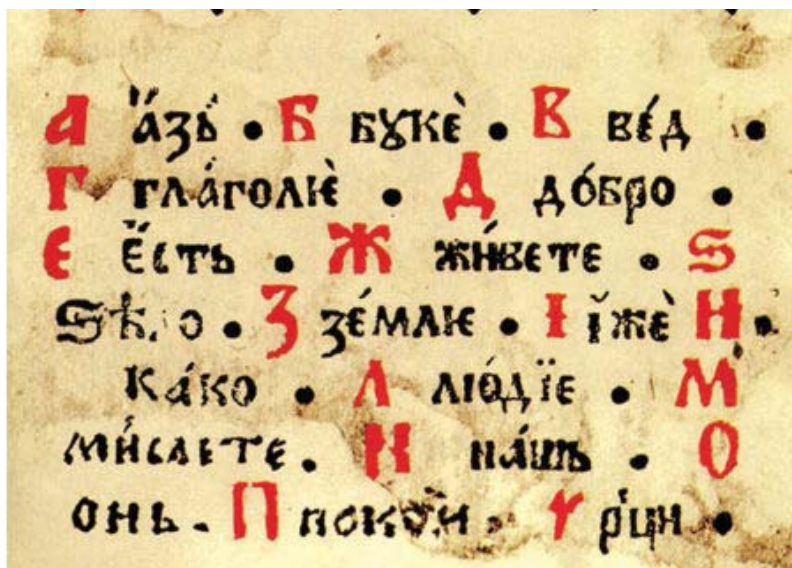 А а҆́зъ • Б бꙋкѐ • В ве́д •
Г гла́голѥ̀ • Д до́бро •
Е є҆́сть • Ж жи́вете • Ѕ
ѕѣло • З зе́млѥ • І і҆жѐ И •
ка́ко • Л лю́дїе • М
ми́слете • Н на́шь • О
онь • П поко́и • Г рци •